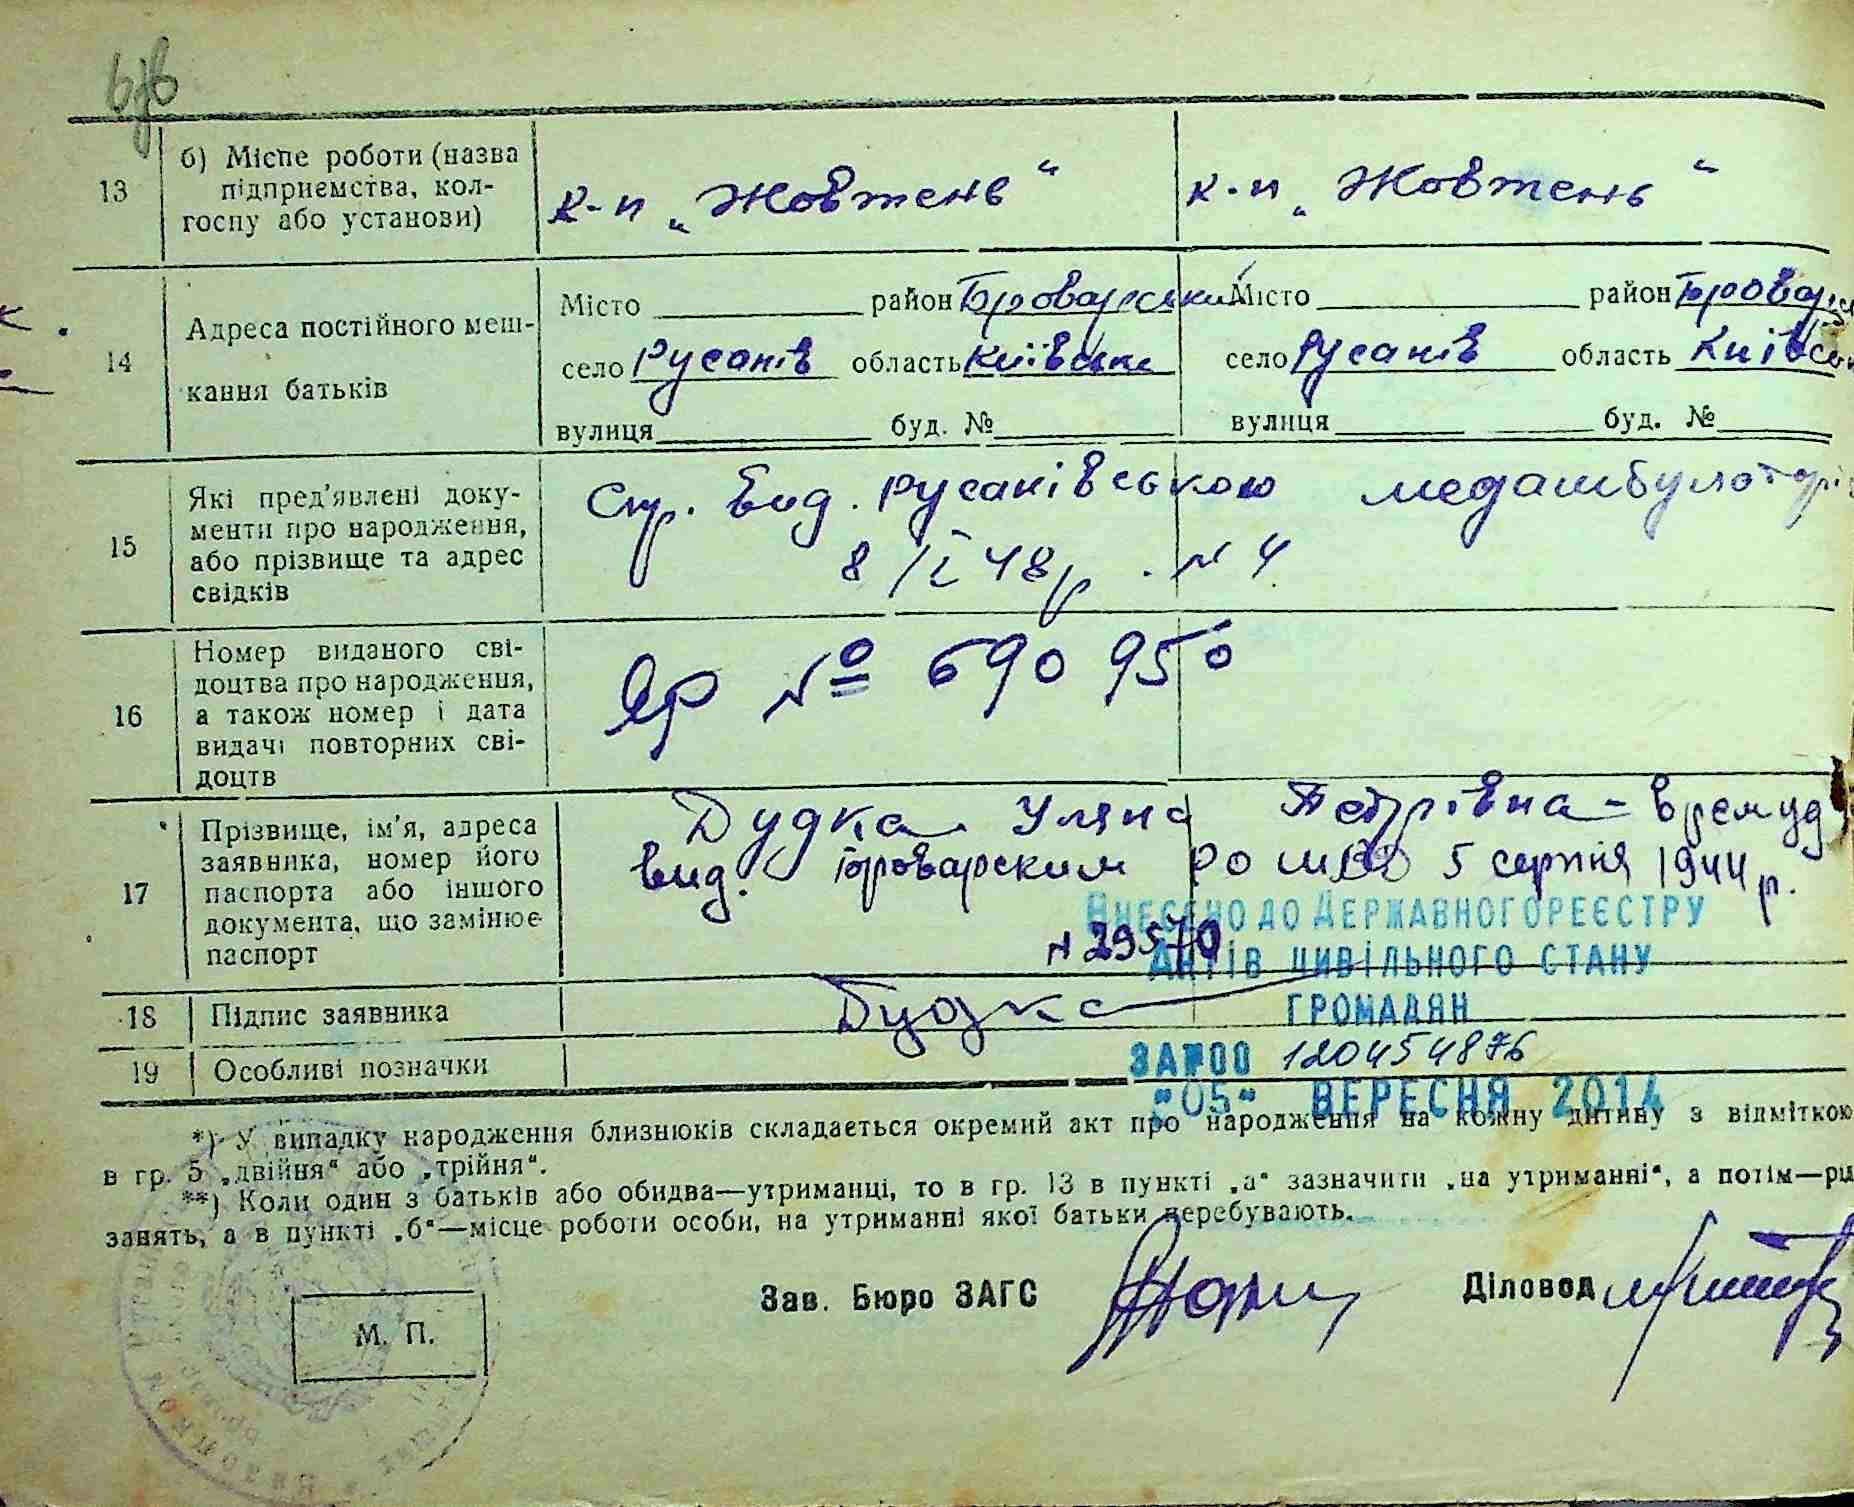 13
б) Місце роботи (назва
підприємства, кол-
госпу або установи)
к-п „Жовтень“
к-п „Жовтень“
14
Адреса постійного меш-
кання батьків
Місто район Броварський
село Русанів область Київська
вулиця буд. №
Місто район Бровар
село Русанів область Київськ
вулиця буд. №
15
Які пред'явлені доку-
менти про народження,
або прізвище та адрес
свідків
Спр. вид. Русанівською медамбулаторі
8/I 48 р. № 4
16
Номер виданого сві-
доцтва про народження,
а також номер і дата
видачі повторних сві-
доцтв
№ 690950
17
Прізвище, ім'я, адреса
заявника, номер його
паспорта або іншого
документа, що замінює
паспорт
Дудка Уляна Петрівна - врем уд
вид. Броварским РО МВД 5 серпня 1944 р.
№ 29570
ВНЕСЕНО ДО ДЕРЖАВНОГО РЕЄСТРУ
АКТІВ ЦИВІЛЬНОГО СТАНУ
ГРОМАДЯН
18
Підпис заявника
Дудка
19
Особливі позначки
ЗА №00 120454876
"05" ВЕРЕСНЯ 2014
*) У випадку народження близнюків складається окремий акт про народження на кожну дитину з відміткою
в гр. 5 „двійня“ або „трійня“.
**) Коли один з батьків або обидва—утриманці, то в гр. 13 в пункті „а“ зазначити „на утриманні“, а потім—рід
занять, а в пункті „б“—місце роботи особи, на утриманні якої батьки перебувають.
Зав. Бюро ЗАГС
Діловод
М. П.